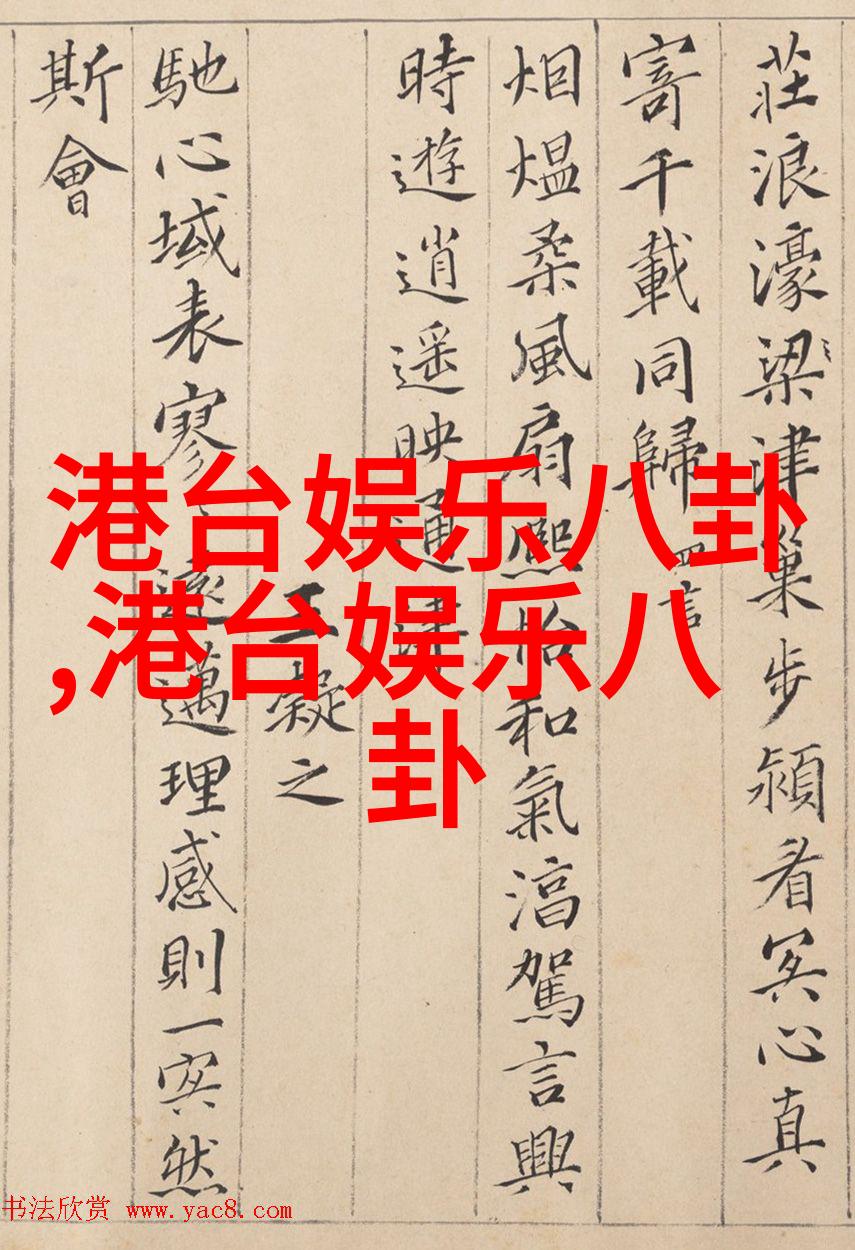 莊浪濠梁津巢步潁看冥心真
寄千載同歸 四言
烟煴柔風扇熙怡和氣淐駕言興
時遊逍遥映通津
王凝之
馳心域表寥〻遠邁理感則一冥然
斯會
港台娱乐八卦
,港台娱乐八
卦
书法欣赏 www.yac8.com